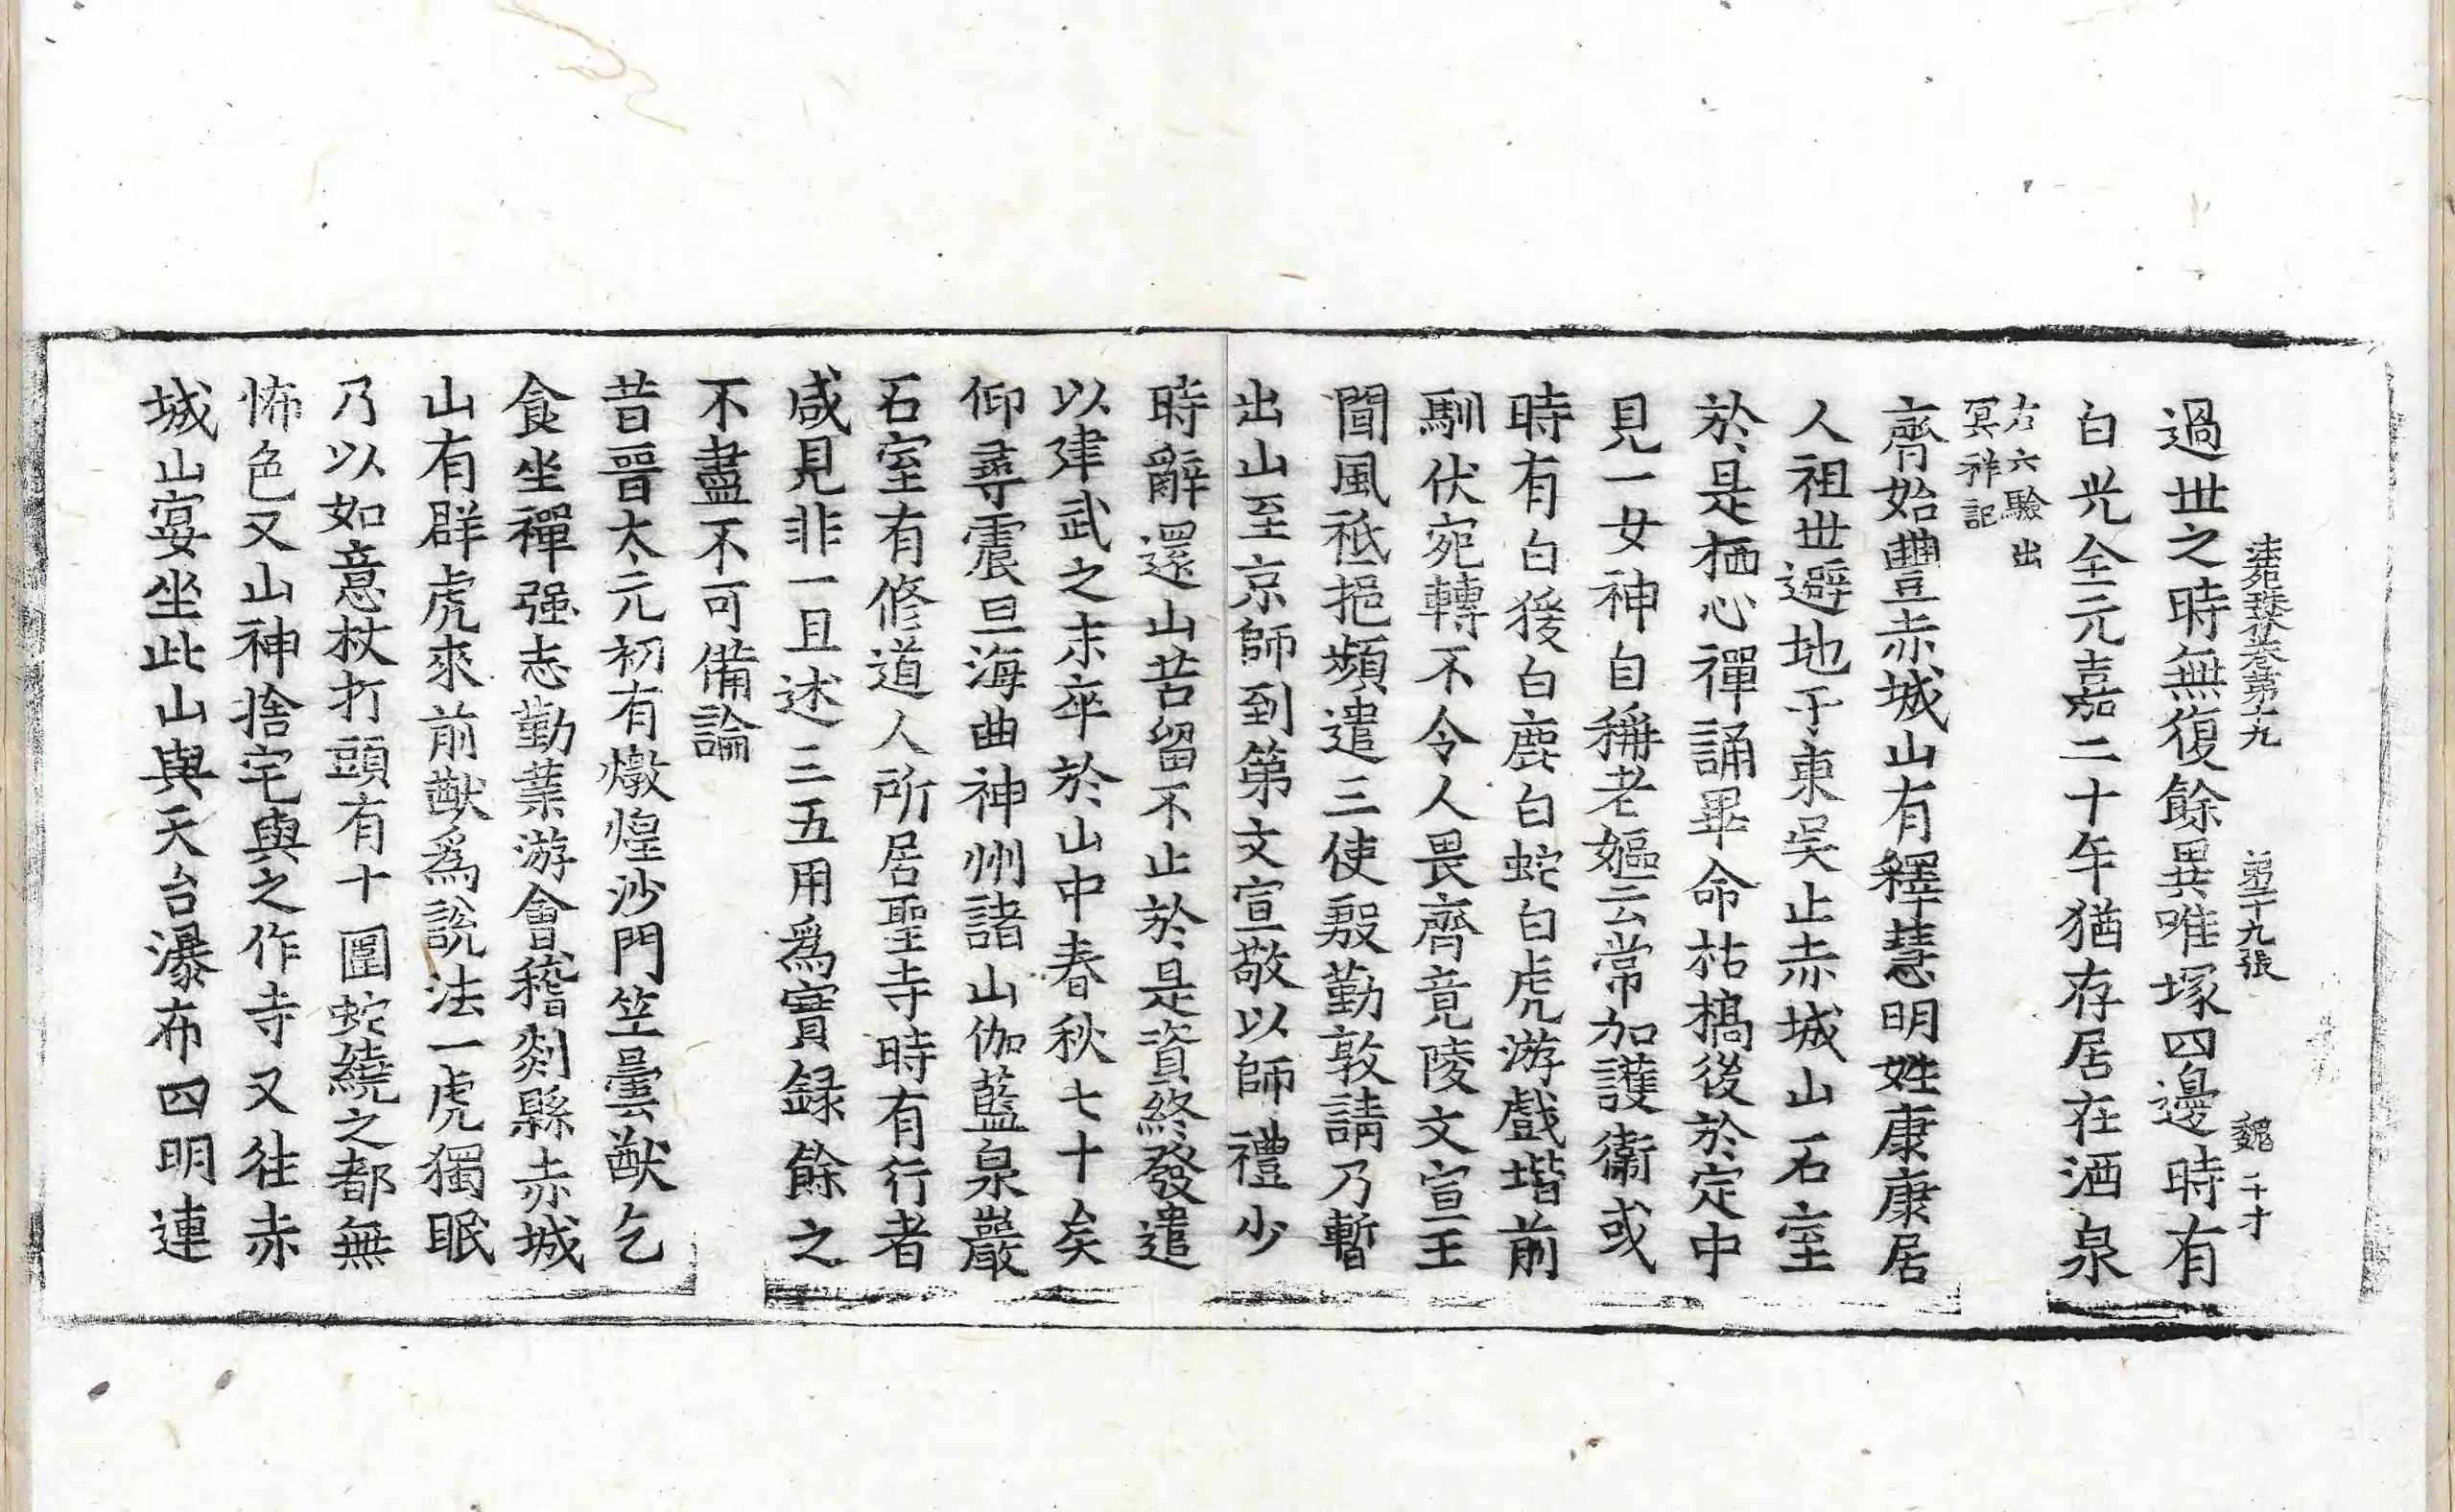 法苑珠林卷第十九 第十九張 魏 千才
過世之時無復餘異唯塚四邊時有
白光至元嘉二十年猶存居在酒泉
右六驗出
冥祥記
齊始豐赤城山有釋慧明姓康康居
人祖世避地于東吳止赤城山石室
於是栖心禪誦畢命枯槁後於定中
見一女神自稱老嫗云常加護衛或
時有白猨白鹿白蛇白虎游戲堦前
馴伏宛轉不令人畏齊竟陵文宣王
聞風祗挹頻遣三使殷勤敦請乃暫
出山至京師到第文宣敬以師禮少
時辭還山苦留不止於是資終發遣
以建武之末卒於山中春秋七十矣
仰尋震旦海曲神州諸山伽藍泉巖
石室有修道人所居聖寺時有行者
咸見非一且述三五用為實録餘之
不盡不可備論
昔晉太元初有燉煌沙門竺曇猷乞
食坐禪强志勤業游會稽剡縣赤城
山有群虎來前猷為説法一虎獨眠
乃以如意杖打頭有十圍蛇繞之都無
怖色又山神捨宅與之作寺又往赤
城山宴坐此山與天台瀑布四明連